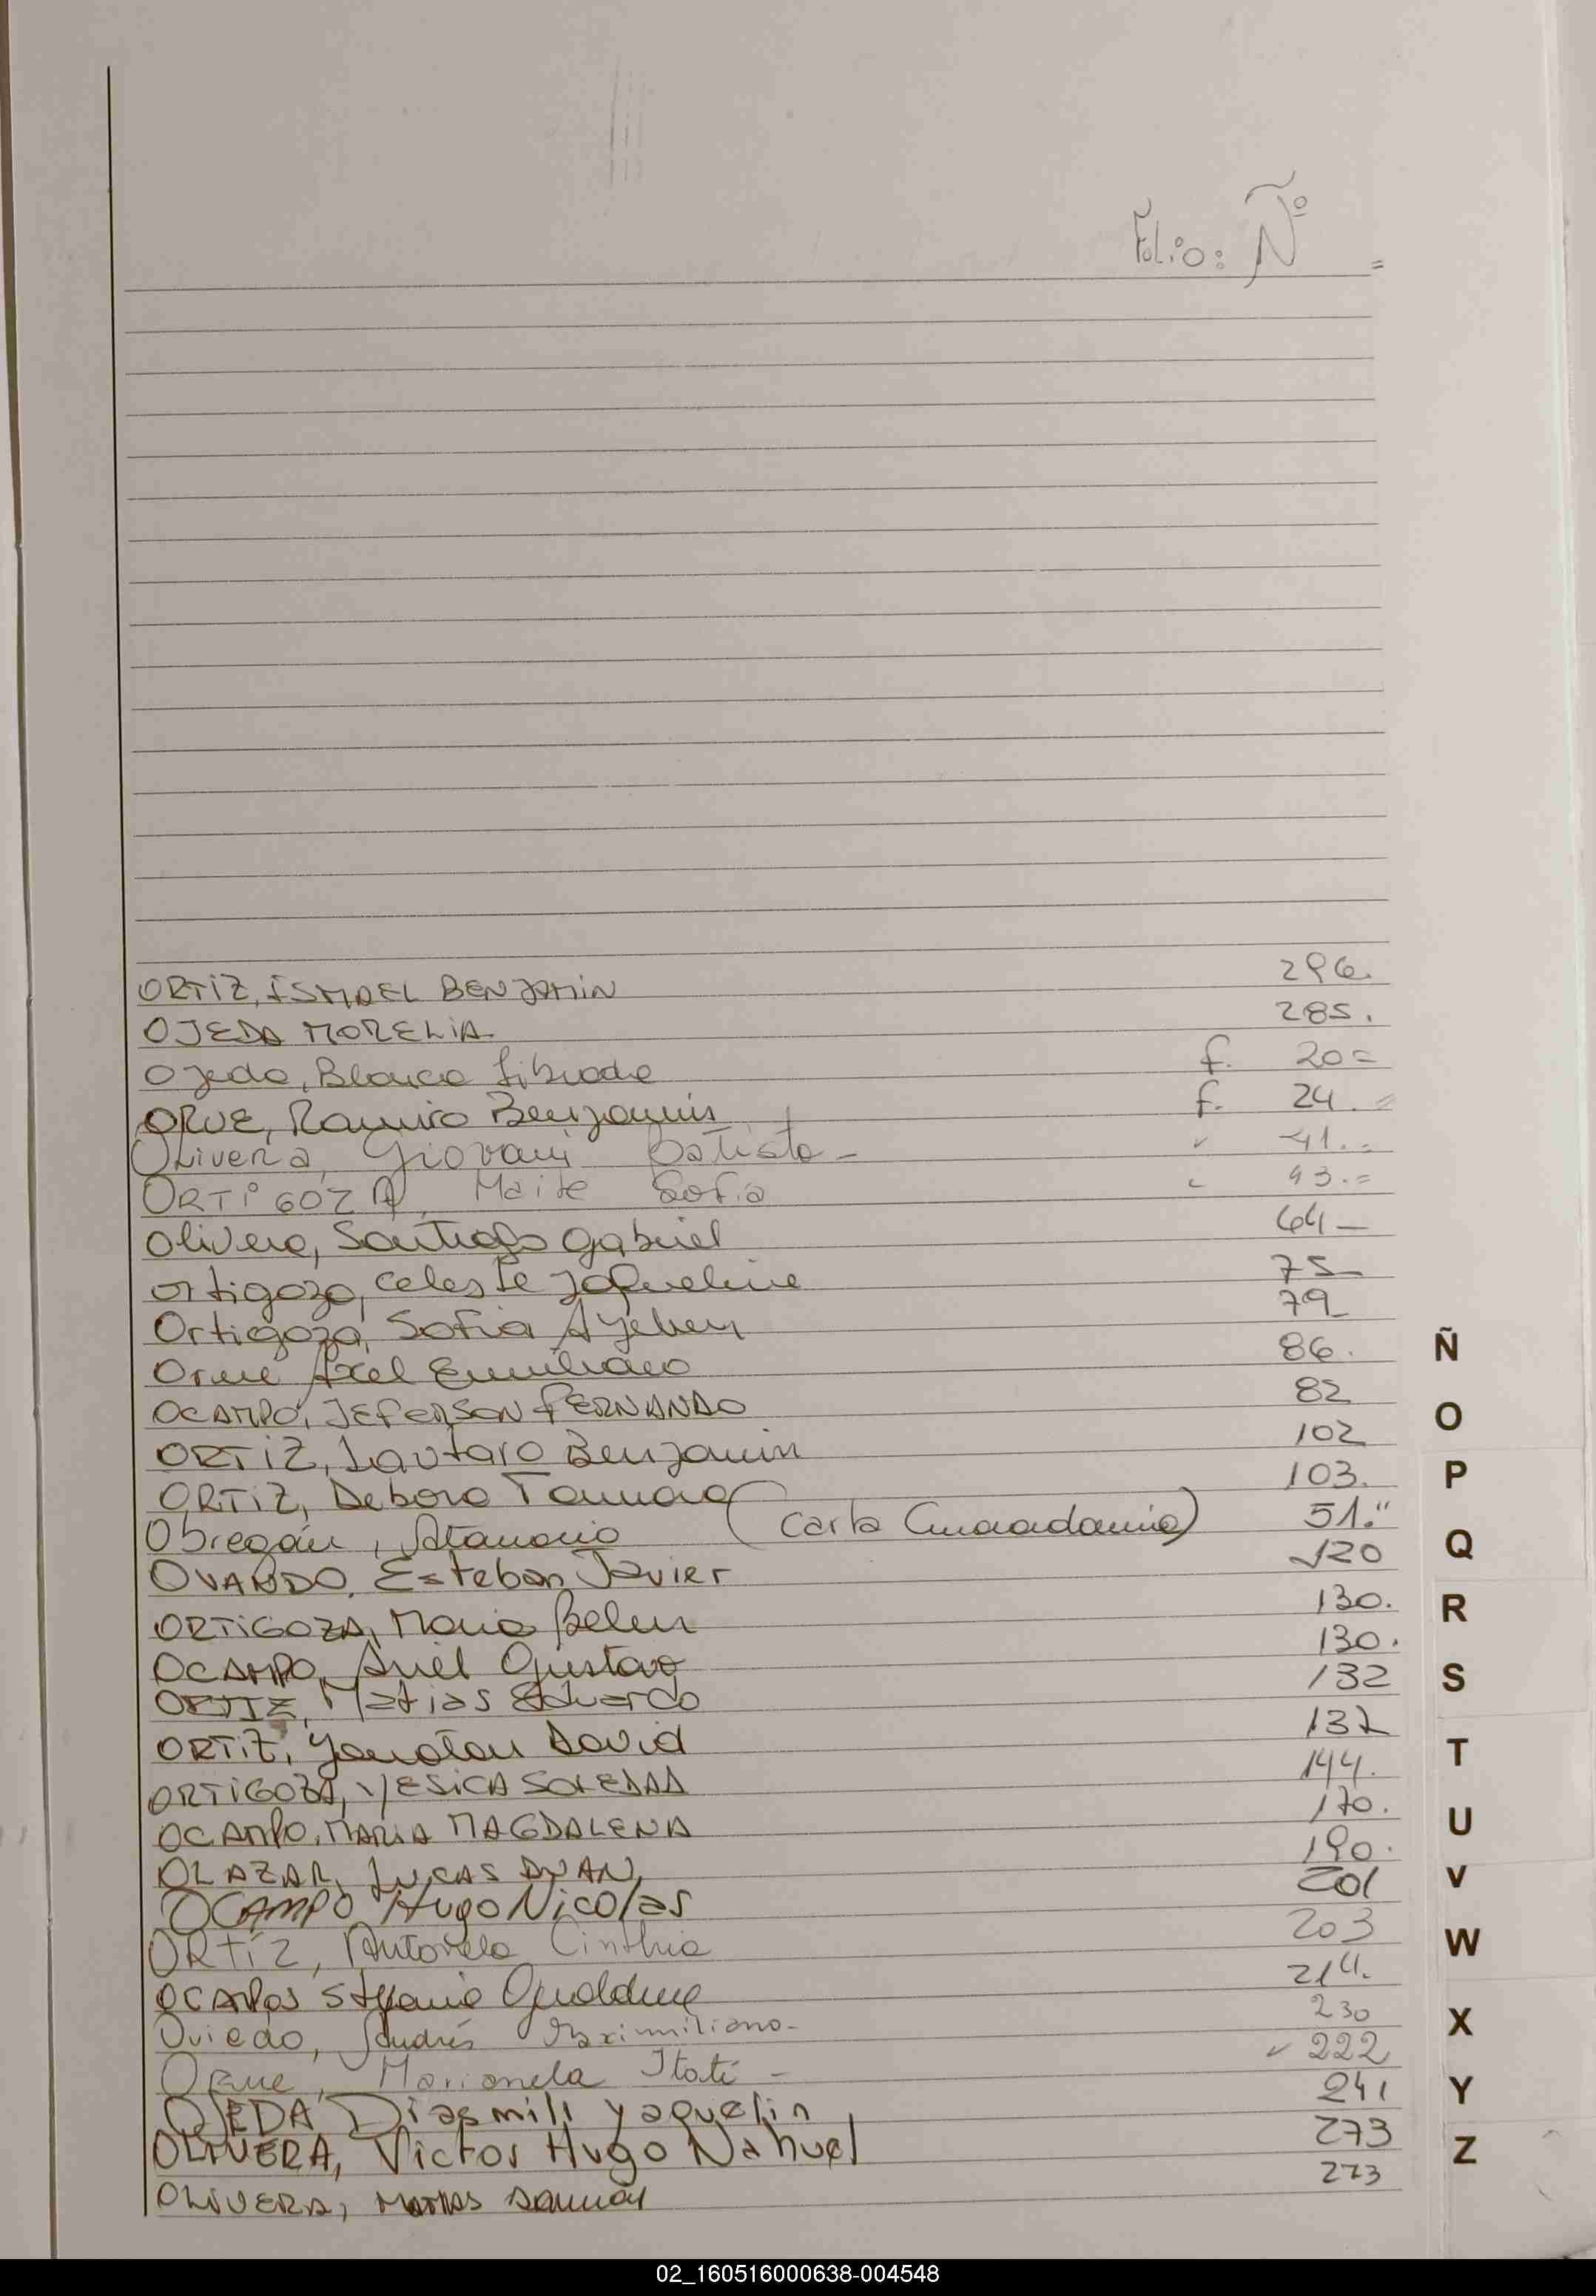 Folio: Ñº =
ORTIZ, ISMAEL BENJAMIN 296.
OJEDA MORELIA 285.
Ojeda, Blanca Librada f. 20=
ORUE, Ramiro Benjamin f. 24.=
Olivera, Giovani Batista- 41.=
ORTIGOZA, Maite Sofia 43.=
Olivera, Santiago Gabriel 64-
Ortigoza, Celeste Jaqueline 75-
Ortigoza, Sofia Ayelen 79-
Orue Axel Emiliano 86.
OCAMPO, JEFERSON FERNANDO 82
ORTIZ, Lautaro Benjamin 102
ORTIZ, Debora Tamara 103.
Obregón, (Carta Ciudadanía) 51."
OVANDO, Esteban Javier 120
ORTIGOZA, Maria Belen 130.
OCAMPO, Ariel Gustavo 130.
ORTIZ, Matias Eduardo 132
ORTIZ, Yonatan David 132
ORTIGOZA, YESICA SOLEDAD 144.
OCAMPO, MARIA MAGDALENA 170.
OLAZAR, LUCAS JUAN 190.
OCAMPO Hugo Nicolas 201
ORTIZ, Antonela Cinthia 203
OCAMPOS Stefania Geraldine 214.
Oviedo, Andrés Maximiliano- 230
Orue, Marianela Itatí - 222
OJEDA Diasmili yaquelin 241
OLIVERA, Victor Hugo Nahuel 273
OLIVERA, MATIAS 273
Ñ
O
P
Q
R
S
T
U
V
W
X
Y
Z
02_160516000638-004548